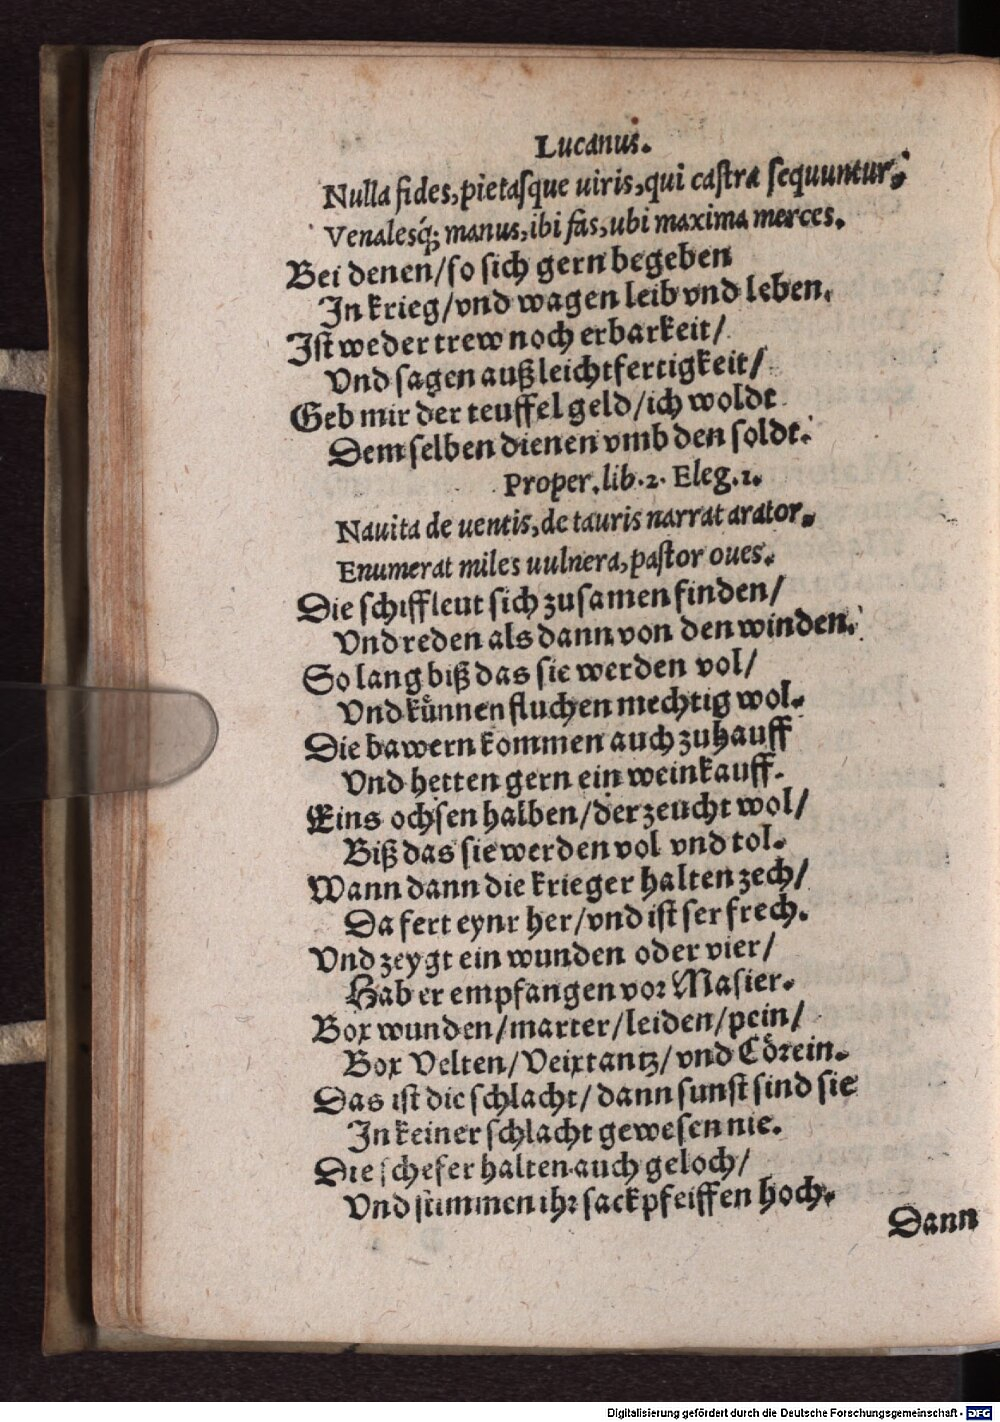 Lucanus.
Nulla fides, pietasque uiris, qui castra sequuntur,
Venalesq́; manus, ibi fas, ubi maxima merces.
Bei denen/so sich gern begeben
In krieg/vnd wagen leib vnd leben.
Jst weder trew noch erbarkeit/
Vnd sagen auß leichtfertigkeit/
Geb mir der teuffel geld/ich woldt
Dem selben dienen vmb den soldt.
Proper. lib. 2. Eleg. 1.
Nauita de uentis, de tauris narrat arator.
Enumerat miles uulnera, pastor oues.
Die schiffleut sich zusamen finden/
Vnd reden als dann von den winden.
So lang biß das sie werden vol/
Vnd kuͤnnen fluchen mechtig wol.
Die bawern kommen auch zuhauff
Vnd hetten gern ein weinkauff.
Eins ochsen halben/der zeucht wol/
Biß das sie werden vol vnd tol.
Wann dann die krieger halten zech/
Da fert eynr her/vnd ist ser frech.
Vnd zeygt ein wunden oder vier/
Hab er empfangen vor Masier.
Box wunden/marter/leiden/pein/
Box Velten/Veixtantz/vnd Coͤrein.
Das ist die schlacht/dann sunst sind sie
In keiner schlacht gewesen nie.
Die schefer halten auch geloch/
Vnd stimmen ihr sackpfeiffen hoch.
Dann
Digitalisierung gefördert durch die Deutsche Forschungsgemeinschaft - DFG